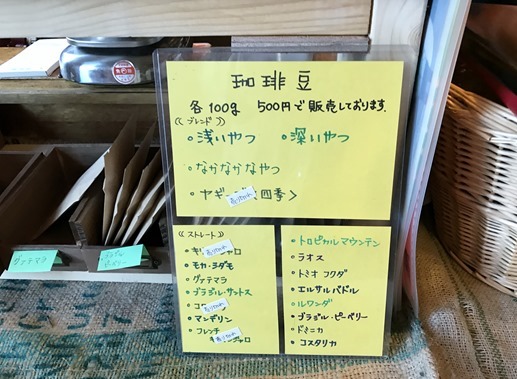 珈琲豆
各100g 500円で販売しております。
《ブレンド》
・浅いやつ ・深いやつ
・なかなかなやつ
・ヤギ 売り切れ 四季>
《ストレート》
・キリ 売り切れ ャロ
・モカ・シダモ
・グァテマラ
・ブラジル・サントス
・コロ 売り切れ
・マンデリン
・フレンチ 売り切れ
キ ジャロ
・トロピカルマウンテン
・ラオス
・ドミナ フクダ
・エルサルバドル
・ルワンダ
・ブラジル・ピーベリー
・ドミニカ
・コスタリカ
グァテマラ